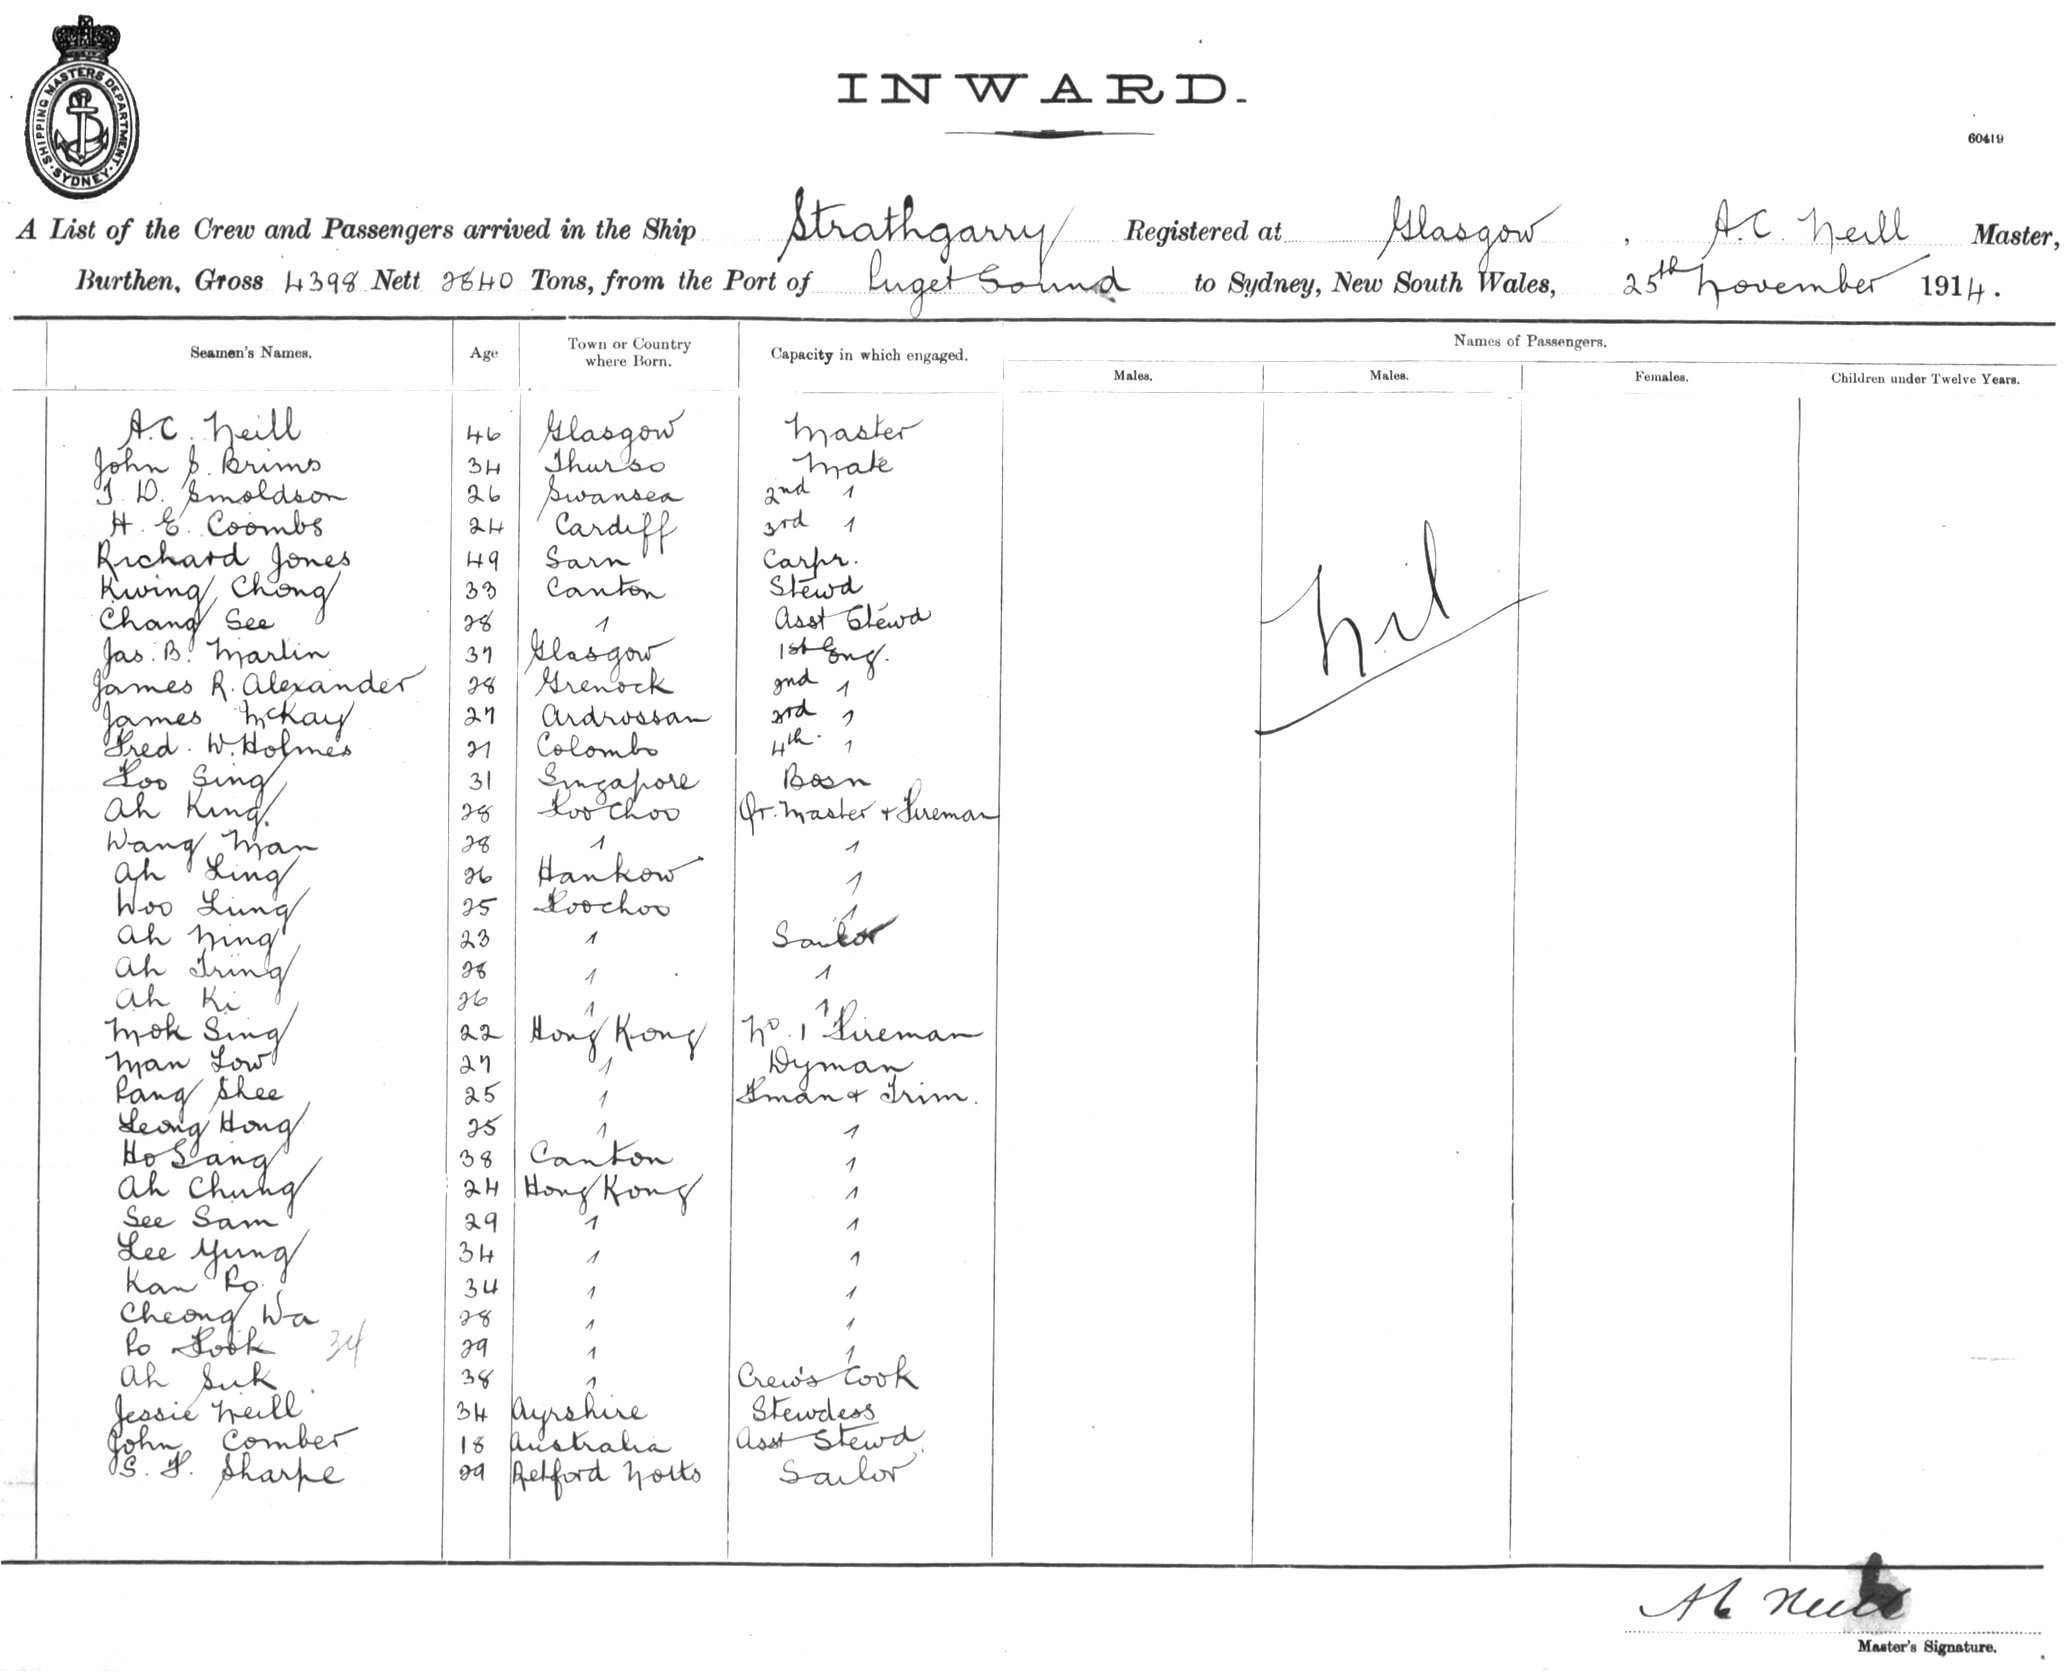 SHIPPING MASTERS DEPARTMENT
SYDNEY
INWARD.
60419
A List of the Crew and Passengers arrived in the Ship Strathgarry Registered at Glasgow, A.C. Neill Master,
Burthen, Gross 4398 Nett 2840 Tons, from the Port of Puget Sound to Sydney, New South Wales, 25th November 1914.
Names of Passengers.
Seamen's Names. Age Town or Country where Born. Capacity in which engaged. Males. Males. Females. Children under Twelve Years.
A.C. Neill 46 Glasgow Master
John S. Brims 34 Thurso Mate
T. D. Smoldson 26 Swansea 2nd "
H. E. Coombs 24 Cardiff 3rd "
Richard Jones 49 Sarn Carpr.
Kwing Chong 33 Canton Stewd
Chang See 28 " Asst Stewd
Nil
Jas. B. Martin 37 Glasgow 1st Eng.
James R. Alexander 28 Grenock 2nd "
James McKay 27 Ardrossan 3rd "
Fred. W. Holmes 21 Colombo 4th "
Foo Sing 31 Singapore Bosn
Ah King. 28 Foo Choo Qr. Master & Fireman
Wang Man 28 " "
Ah Ling 26 Hankow "
Woo Lung 25 Foochoo "
Ah Ning 23 " Sailor
Ah Tring 28 " "
Ah Ki 26 " "
Mok Sing 22 Hong Kong No. 1 Fireman
Man Low 27 " Dyman
Pang Shee 25 " Fman & Trim.
Leong Hong 25 " "
Ho Sang 38 Canton "
Ah Chung 24 Hong Kong "
See Sam 29 " "
Lee Yung 34 " "
Kan Po 34 " "
Cheong Wa 28 " "
Po Fook 34 29 " "
Ah Suk 38 " Crew's Cook
Jessie Neill 34 Ayrshire Stewdess
John Comber 18 Australia Asst Stewd
S. F. Sharpe 29 Retford Notts Sailor
A C Neill
Master's Signature.